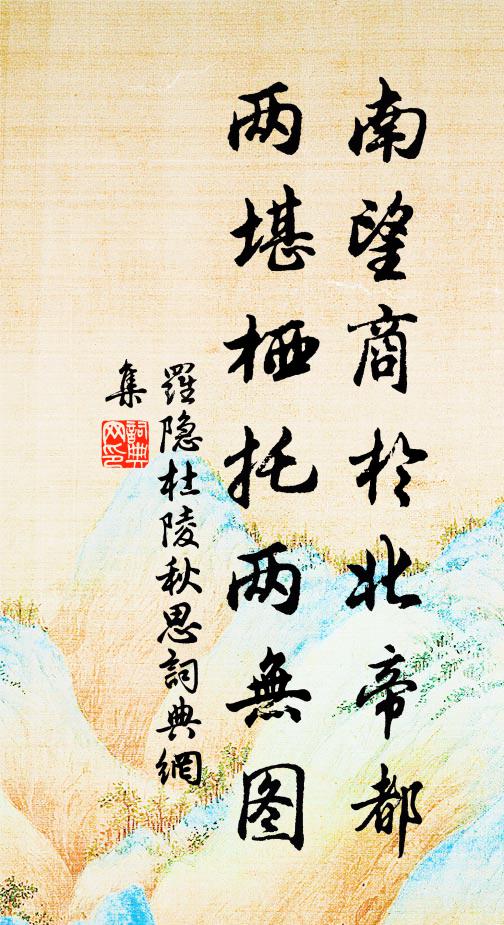 南望商於北帝都
两堪栖托两無图
羅隐杜陵秋思詞典網
集
詞典
网印